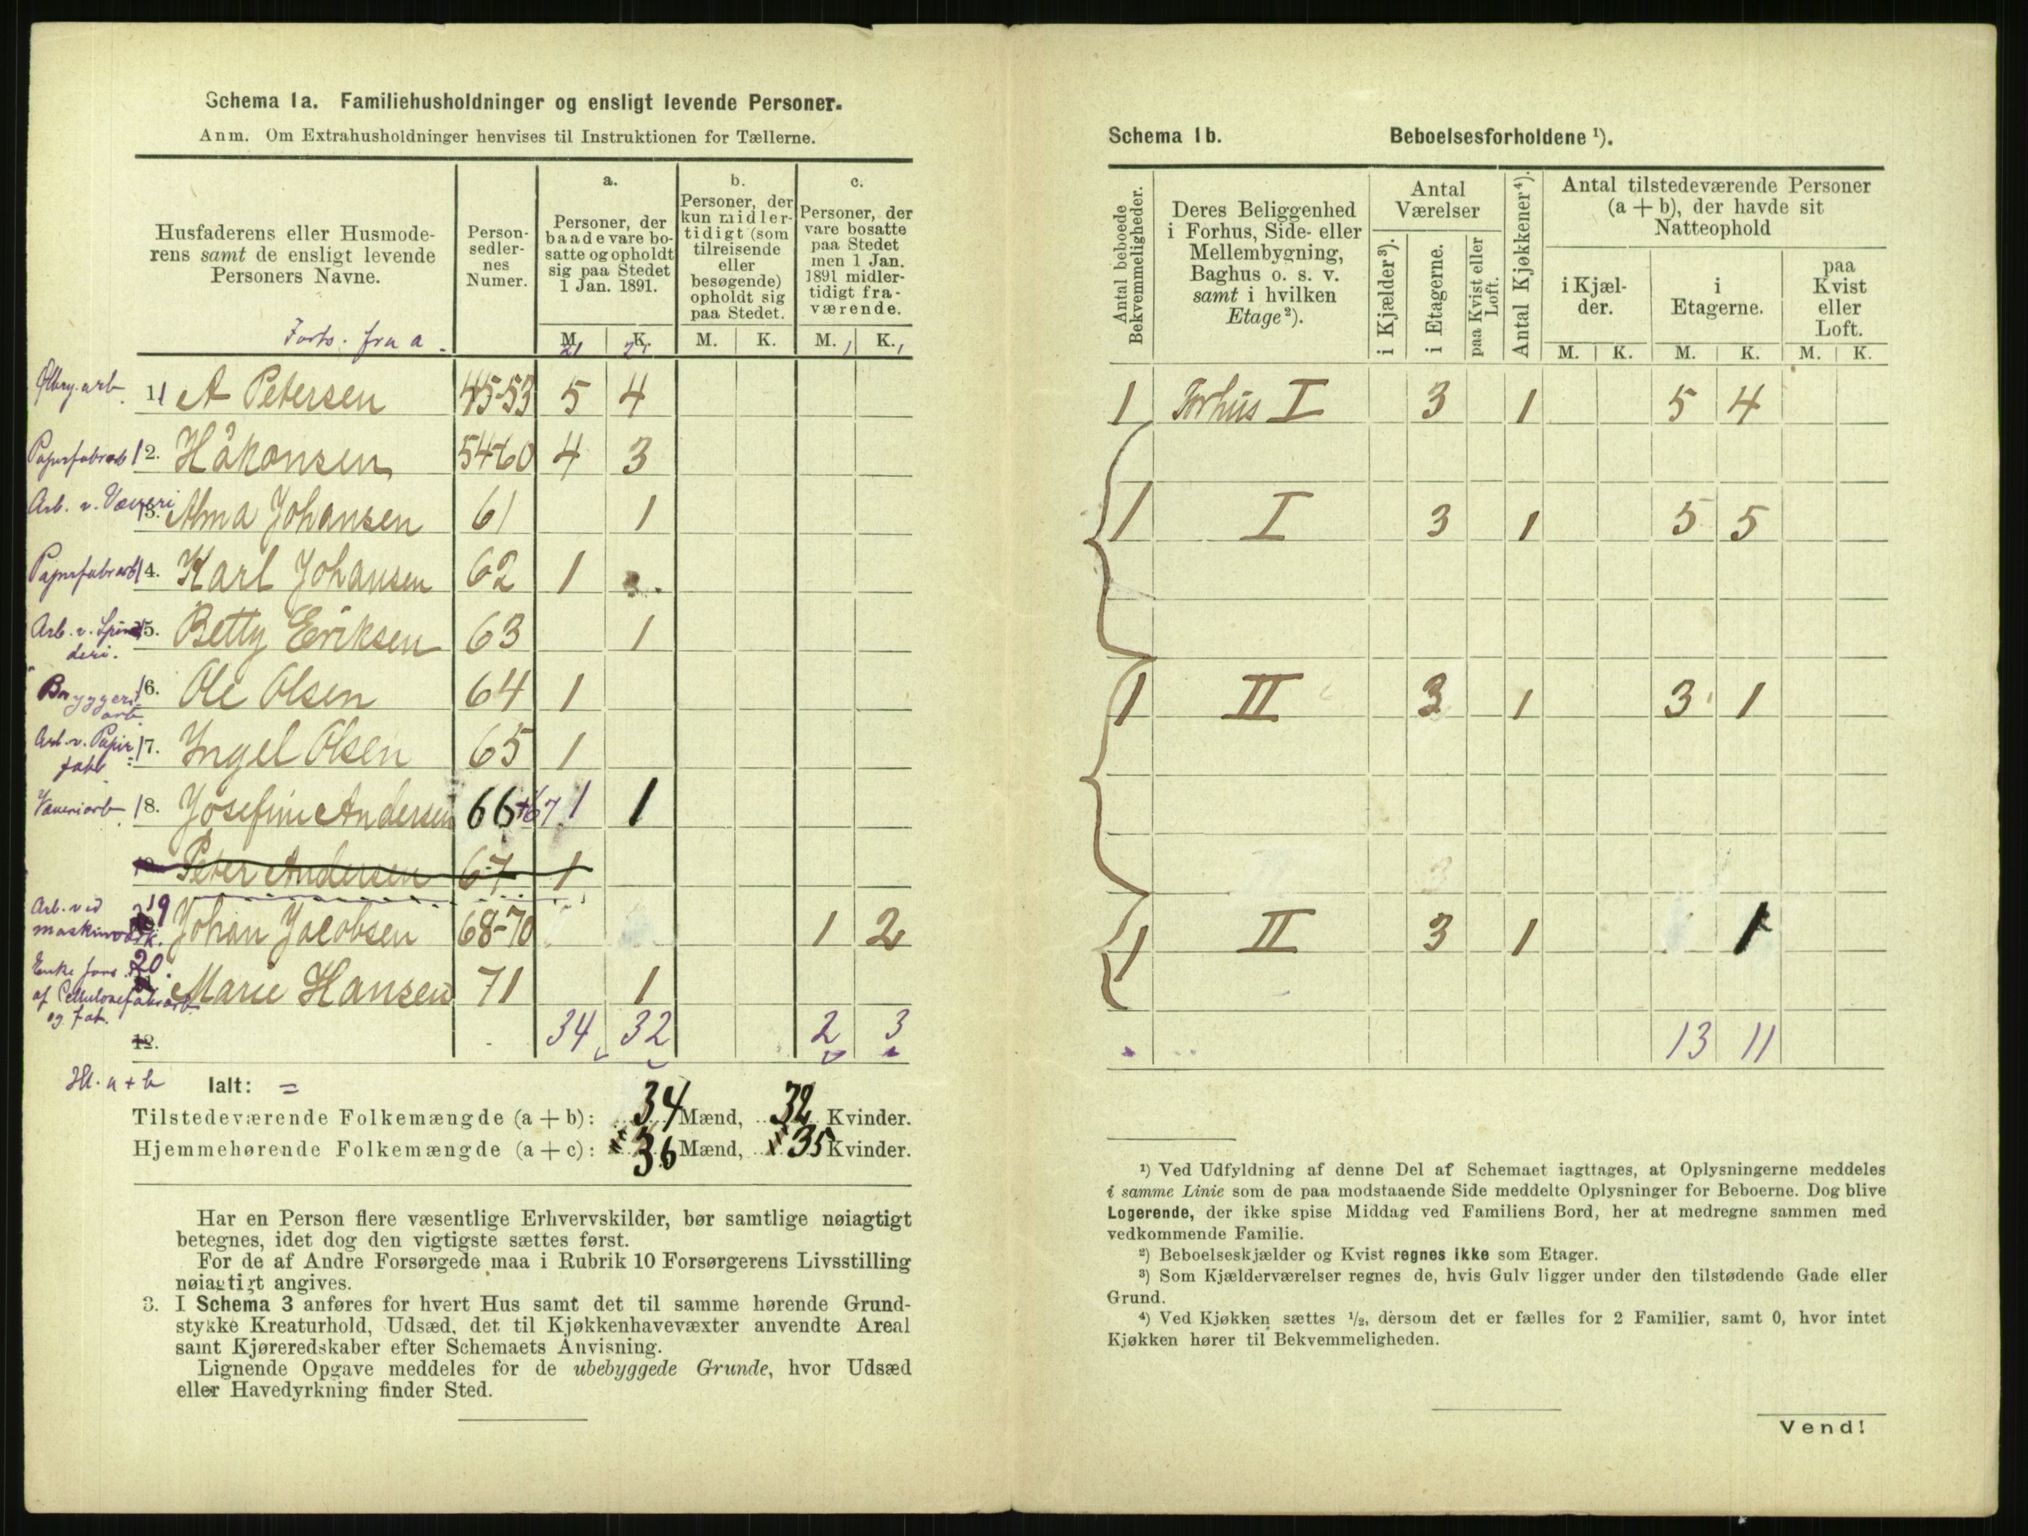 Schema 1a. Familiehusholdninger og ensligt levende Personer.
Anm. Om Extrahusholdninger henvises til Instruktionen for Tællerne.
Husfaderens eller Husmoderens samt de ensligt levende Personers Navne.
Personsedlernes Numer.
a. Personer, der baade vare bosatte og opholdt sig paa Stedet 1 Jan. 1891.
b. Personer, der kun midlertidigt (som tilreisende eller besøgende) opholdt sig paa Stedet.
c. Personer, der vare bosatte paa Stedet men 1 Jan. 1891 midlertidigt fraværende.
Forts. fra a.
M. K. M. K. M. K.
21 21 1 1
11 A Petersen 45-53 5 4
Papirfabrarb 12. Håkonsen 54-60 4 3
Arb. v. Væveri 13. Alma Johansen 61 1
Papirfabrarb 14. Karl Johansen 62 1
Arb. v. Spinderi. 15. Betty Eriksen 63 1
Bryggeriarb. 16. Ole Olsen 64 1
Arb. v. Papirfabr. 17. Yngel Olsen 65 1
Væveriarb. 18. Josefine Andersen 66+67 1 1
Peter Andersen 67 1
Arb. ved maskinværk. 19 Johan Jacobsen 68-70 1 2
Enke fors. af Cellulosefabrarb og fat. 20. Marie Hansen 71 1
12. 34 32 2 3
Ialt: =
Tilstedeværende Folkemængde (a + b): 34 Mænd, 32 Kvinder.
Hjemmehørende Folkemængde (a + c): x 36 Mænd, x 35 Kvinder.
Har en Person flere væsentlige Erhvervskilder, bør samtlige nøiagtigt
betegnes, idet dog den vigtigste sættes først.
For de af Andre Forsørgede maa i Rubrik 10 Forsørgerens Livsstilling
nøiagtigt angives.
3. I Schema 3 anføres for hvert Hus samt det til samme hørende Grund-
stykke Kreaturhold, Udsæd, det til Kjøkkenhavevæxter anvendte Areal
samt Kjøreredskaber efter Schemaets Anvisning.
Lignende Opgave meddeles for de ubebyggede Grunde, hvor Udsæd
eller Havedyrkning finder Sted.
Schema 1b. Beboelsesforholdene ¹).
Antal beboede Bekvemmeligheder.
Deres Beliggenhed i Forhus, Side- eller Mellembygning, Baghus o. s. v. samt i hvilken Etage ²).
Antal Værelser
i Kjælder ³).
i Etagerne.
paa Kvist eller Loft.
Antal Kjøkkener ⁴).
Antal tilstedeværende Personer (a + b), der havde sit Natteophold
i Kjælder.
i Etagerne.
paa Kvist eller Loft.
M. K. M. K. M. K.
1 Forhus I 3 1 5 4
1 I 3 1 5 5
1 II 3 1 3 1
1 II 3 1 1
13 11
¹) Ved Udfyldning af denne Del af Schemaet iagttages, at Oplysningerne meddeles
i samme Linie som de paa modstaaende Side meddelte Oplysninger for Beboerne. Dog blive
Logerende, der ikke spise Middag ved Familiens Bord, her at medregne sammen med
vedkommende Familie.
²) Beboelseskjælder og Kvist regnes ikke som Etager.
³) Som Kjælderværelser regnes de, hvis Gulv ligger under den tilstødende Gade eller
Grund.
⁴) Ved Kjøkken sættes ½, dersom det er fælles for 2 Familier, samt 0, hvor intet
Kjøkken hører til Bekvemmeligheden.
Vend!